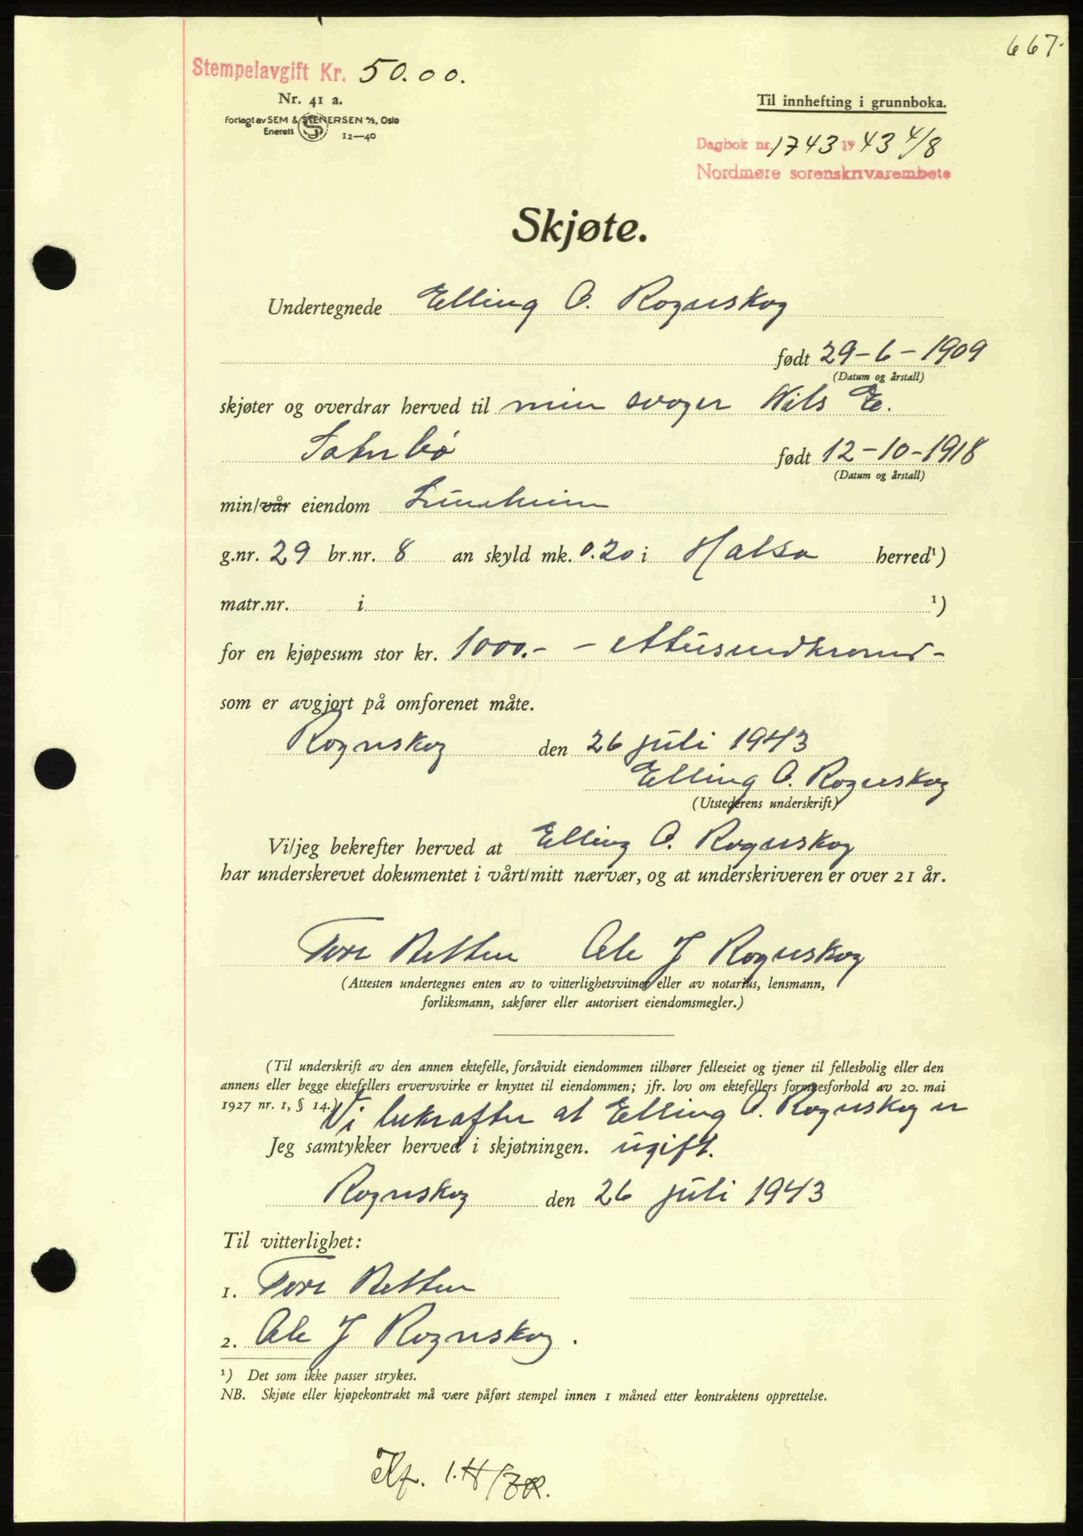 667.
Stempelavgift Kr. 50.00.
Nr. 41 a.
Forlagt av SEM & STENERSEN A/S, Oslo
Enerett 12—40
Til innhefting i grunnboka.
Dagbok nr. 1743 19 43 4/8
Nordmøre sorenskrivarembete
Skjøte.
Undertegnede Elling O. Rognskog
født 29-6-1909
(Datum og årstall)
skjøter og overdrar herved til min svoger Nils E.
født 12-10-1918
(Datum og årstall)
min/vår eiendom
g.nr. 29 br.nr. 8 an skyld mk. 0.20 i Halsa herred¹)
matr.nr. i ¹)
for en kjøpesum stor kr. 1000.- - ettusendkroner-
som er avgjort på omforenet måte.
Rognskog den 26 juli 1943
Elling O. Rognskog
(Utstederens underskrift)
Vi/jeg bekrefter herved at Elling O. Rognskog
har underskrevet dokumentet i vårt/mitt nærvær, og at underskriveren er over 21 år.
Tore Betten Ole J Rognskog
(Attesten undertegnes enten av to vitterlighetsvitner eller av notarius, lensmann,
forliksmann, sakfører eller autorisert eiendomsmegler.)
(Til underskrift av den annen ektefelle, forsåvidt eiendommen tilhører felleseiet og tjener til fellesbolig eller den
annens eller begge ektefellers ervervsvirke er knyttet til eiendommen; jfr. lov om ektefellers formuesforhold av 20. mai
1927 nr. 1, § 14.) Vi bekrefter at Elling O. Rognskog er
Jeg samtykker herved i skjøtningen. ugift.
Rognskog den 26 juli 1943
Til vitterlighet:
1. Tore Betten
2. Ole J Rognskog.
¹) Det som ikke passer strykes.
NB. Skjøte eller kjøpekontrakt må være påført stempel innen 1 måned etter kontraktens opprettelse.
Kf.